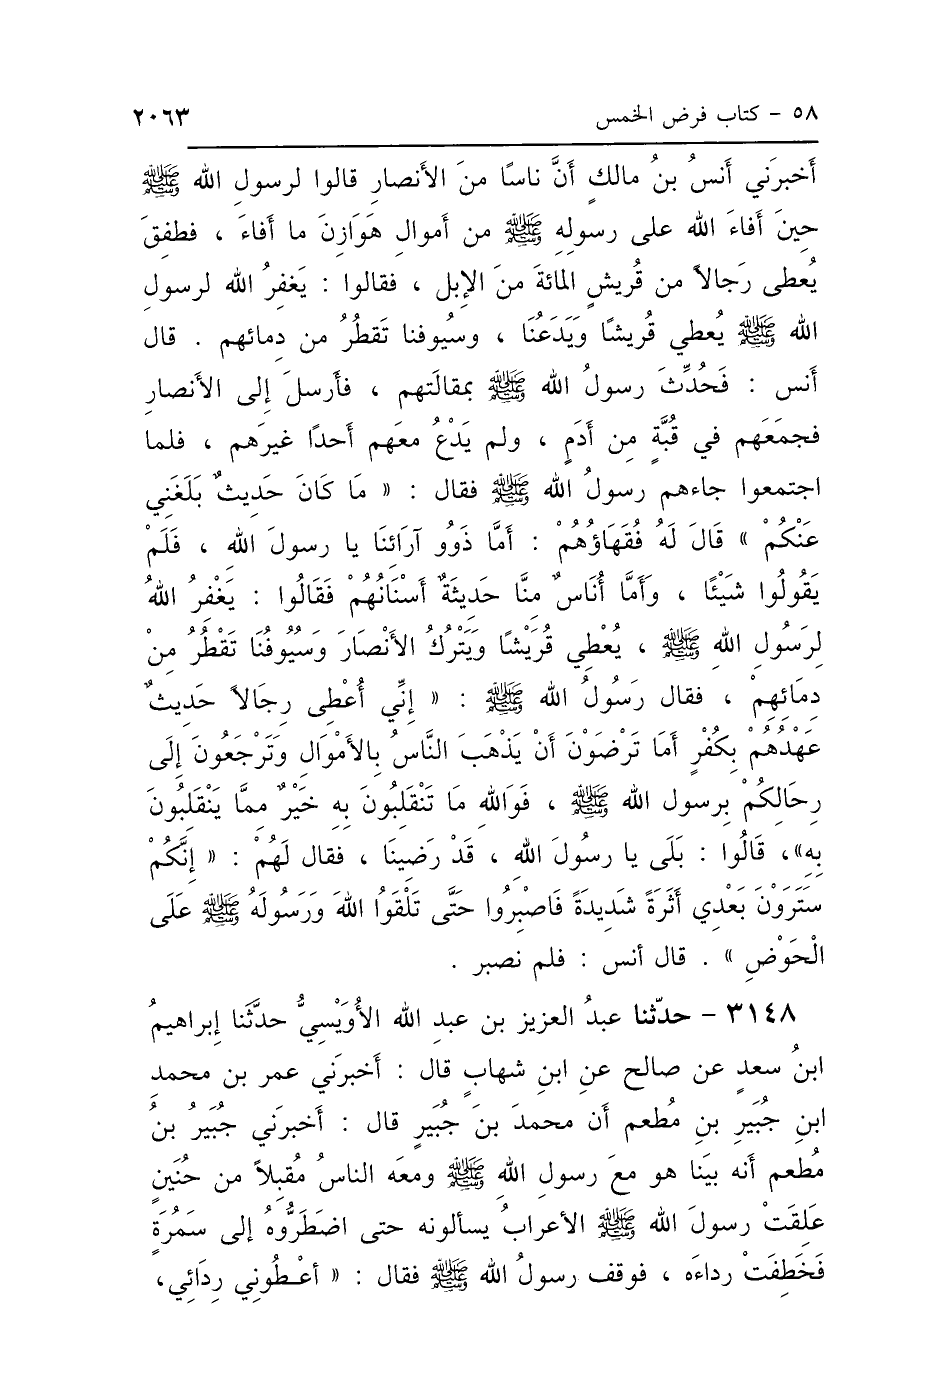 ٥٨ - كتاب فرض الخمس ٢٠٦٣
أَخبرَني أَنسُ بنُ مالكٍ أَنَّ ناسًا منَ الأَنصارِ قالوا لرسولِ الله ﷺ
حِينَ أَفاءَ الله على رسولِهِ ﷺ من أموالِ هَوَازِنَ ما أَفاءَ ، فطفِقَ
يُعطى رَجالاً من قُريشٍ المائةَ منَ الإبل ، فقالوا : يَغفرُ الله لرسولِ
الله ﷺ يُعطي قُريشًا وَيَدَعُنَا ، وسيُوفنا تَقطُرُ من دمائهم . قال
أَنس : فَحُدِّثَ رسولُ الله ﷺ بمقالَتهم ، فأَرسلَ إلى الأنصارِ
فجمَعَهم في قُبَّةٍ مِن أَدَمٍ ، ولم يَدْعُ معَهم أَحدًا غيرَهم ، فلما
اجتمعوا جاءهم رسولُ الله ﷺ فقال : « مَا كَانَ حَدِيثٌ بَلَغَنِي
عَنْكُمْ » قَالَ لَهُ فُقَهَاؤُهُمْ : أَمَّا ذَوُو آرَائنَا يا رسولَ اللهِ ، فَلَمْ
يَقُولُوا شَيْئًا ، وَأَمَّا أُنَاسٌ مِنَّا حَدِيثَةٌ أَسْنَانُهُمْ فَقَالُوا : يَغْفِرُ اللهُ
لِرَسُولِ اللهِ ﷺ ، يُعْطِي قُرَيْشًا وَيَتْرُكُ الأَنْصَارَ وَسُيُوفُنَا تَقْطُرُ مِنْ
دِمَائِهِمْ ، فقال رَسُولُ الله ﷺ : « إنِّي أُعْطِى رِجَالاً حَدِيثٌ
عَهْدُهُمْ بِكُفْرٍ أَمَا تَرْضَوْنَ أَنْ يَذْهَبَ النَّاسُ بِالأَمْوَالِ وَتَرْجَعُونَ إِلَى
رِحَالِكُمْ بِرسول الله ﷺ ، فَوَاللهِ مَا تَنْقَلِبُونَ بِهِ خَيْرٌ مِمَّا يَنْقَلِبُونَ
بِهِ»، قَالُوا : بَلَى يا رسُولَ اللهِ ، قَدْ رَضِينَا ، فقال لَهُمْ : « إِنَّكُمْ
سَتَرَوْنَ بَعْدِي أَثَرَةً شَدِيدَةً فَاصْبِرُوا حَتَّى تَلْقَوُا اللهَ وَرَسُولَهُ ﷺ عَلَى
الْحَوْضِ » . قال أنس : فلم نصبر .
٣١٤٨ - حدّثنا عبدُ العزيز بن عبدِ الله الأُوَيْسِيُّ حدَّثَنا إبراهيمُ
ابنُ سعدٍ عن صالح عنِ ابنِ شهابٍ قال : أَخبرَني عمر بن محمدِ
ابنِ جُبَيرِ بنِ مُطعم أَن محمدَ بنَ جُبَيرٍ قال : أَخبرَني جُبَيرُ بنُ
مُطعم أَنه بيَنا هو معَ رسولِ اللهِ ﷺ ومعَه الناسُ مُقبِلاً من حُنَينٍ
عَلِقَتْ رسولَ الله ﷺ الأعرابُ يسألونه حتى اضطَرُّوهُ إلى سَمُرَةٍ
فَخَطِفَتْ رداءَه ، فوقف رسولُ الله ﷺ فقال : « أعْطُوني رِدَائِي،